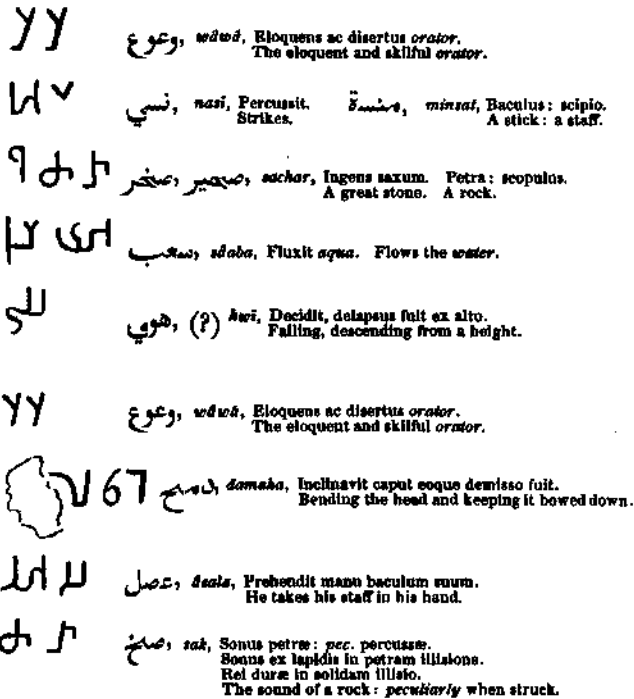 وعوع, wâwâ, Eloquens ac disertus orator.
The eloquent and skilful orator.
نسي, nasi, Percussit. منسة, minsat, Baculus: scipio.
Strikes. A stick: a staff.
صخر, sachar, Ingens saxum. Petra: scopulus.
A great stone. A rock.
سعب, sâaba, Fluxit aqua. Flows the water.
هوي, (?) hwī, Decidit, delapsus fuit ex alto.
Falling, descending from a height.
وعوع, wâwâ, Eloquens ac disertus orator.
The eloquent and skilful orator.
دمح, damaha, Inclinavit caput eoque demisso fuit.
Bending the head and keeping it bowed down.
عصل, âsala, Prehendit manu baculum suum.
He takes his staff in his hand.
صخ, sak, Sonus petræ: pec. percussæ.
Sonus ex lapidis in petram illisione.
Rei duræ in solidam illisio.
The sound of a rock: peculiarly when struck.